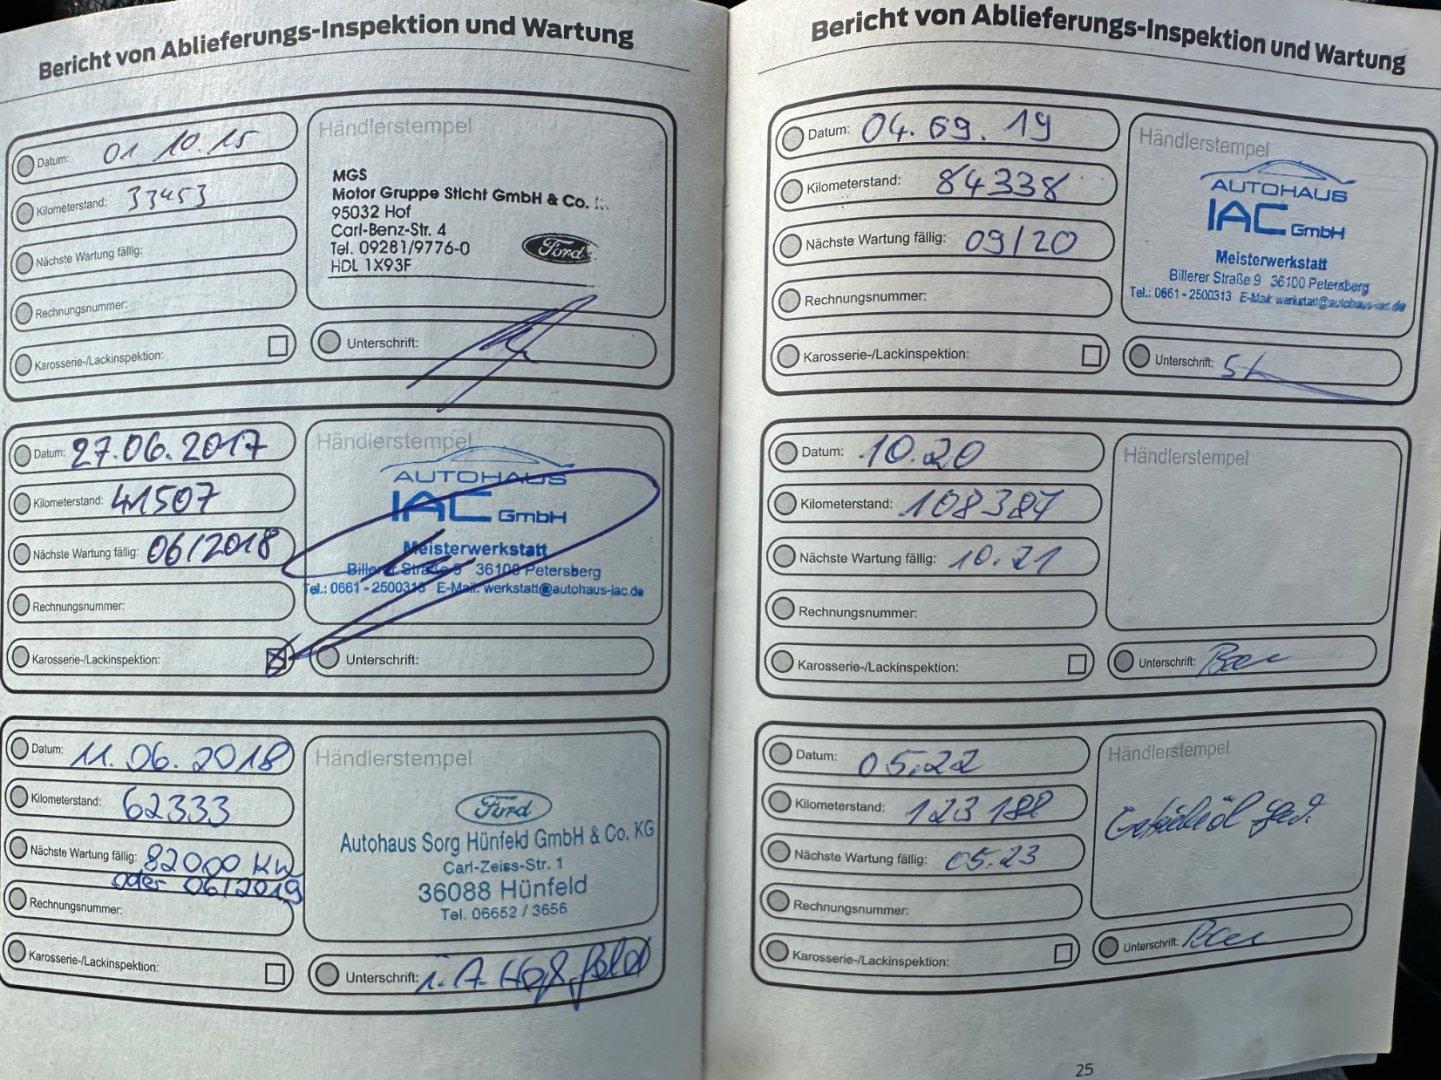 Bericht von Ablieferungs-Inspektion und Wartung
Datum: 01 10.15
Kilometerstand: 33453
Nächste Wartung fällig:
Rechnungsnummer:
Karosserie-/Lackinspektion:
Händlerstempel
MGS
Motor Gruppe Sticht GmbH & Co.
95032 Hof
Carl-Benz-Str. 4
Tel. 09281/9776-0
HDL 1X93F
Ford
Unterschrift:
Datum: 27.06.2017
Kilometerstand: 41507
Nächste Wartung fällig: 06/2018
Rechnungsnummer:
Karosserie-/Lackinspektion:
Händlerstempel
AUTOHAUS
IAC GmbH
Meisterwerkstatt
Billerer Straße 9 36100 Petersberg
Tel.: 0661 - 2500313 E-Mail: werkstatt@autohaus-iac.de
Unterschrift:
Datum: 11.06.2018
Kilometerstand: 62333
Nächste Wartung fällig: 82000 KM
oder 06/2019
Rechnungsnummer:
Karosserie-/Lackinspektion:
Händlerstempel
Ford
Autohaus Sorg Hünfeld GmbH & Co. KG
Carl-Zeiss-Str. 1
36088 Hünfeld
Tel. 06652 / 3656
Unterschrift: i.A.
Bericht von Ablieferungs-Inspektion und Wartung
Datum: 04.09.19
Kilometerstand: 84338
Nächste Wartung fällig: 09/20
Rechnungsnummer:
Karosserie-/Lackinspektion:
Händlerstempel
AUTOHAUS
IAC GmbH
Meisterwerkstatt
Billerer Straße 9 36100 Petersberg
Tel.: 0661 - 2500313 E-Mail: werkstatt@autohaus-iac.de
Unterschrift:
Datum: 10.20
Kilometerstand: 108387
Nächste Wartung fällig: 10.21
Rechnungsnummer:
Karosserie-/Lackinspektion:
Händlerstempel
Unterschrift:
Datum: 05.22
Kilometerstand: 123 188
Nächste Wartung fällig: 05.23
Rechnungsnummer:
Karosserie-/Lackinspektion:
Händlerstempel
Getriebeöl
Unterschrift:
25